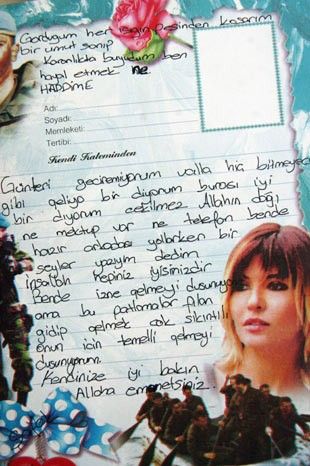 Gördüğüm her ışığın peşinden koşarım
bir umut sanıp
Karanlıkta büyüdüm ben
hayal etmek ne
HADDİME
Adı:
Soyadı:
Memleketi:
Tertibi:
Kendi Kaleminden
Günleri geçiremiyorum valla hiç bitmeyecek
gibi geliyo bir diyorum burası iyi
bir diyorum çekilmez Allahın dağı
ne mektup var ne telefon bende
hazır arkadaş yollarken bir
şeyler yazıyım dedim
İnşallah hepiniz iyisinizdir
Bende izne gelmeyi düşünüyorum
ama bu patlamalar falan
gidip gelmek çok sıkıntılı
onun için temelli gelmeyi
düşünüyorum.
Kendinize iyi bakın
Allaha emanetsiniz.